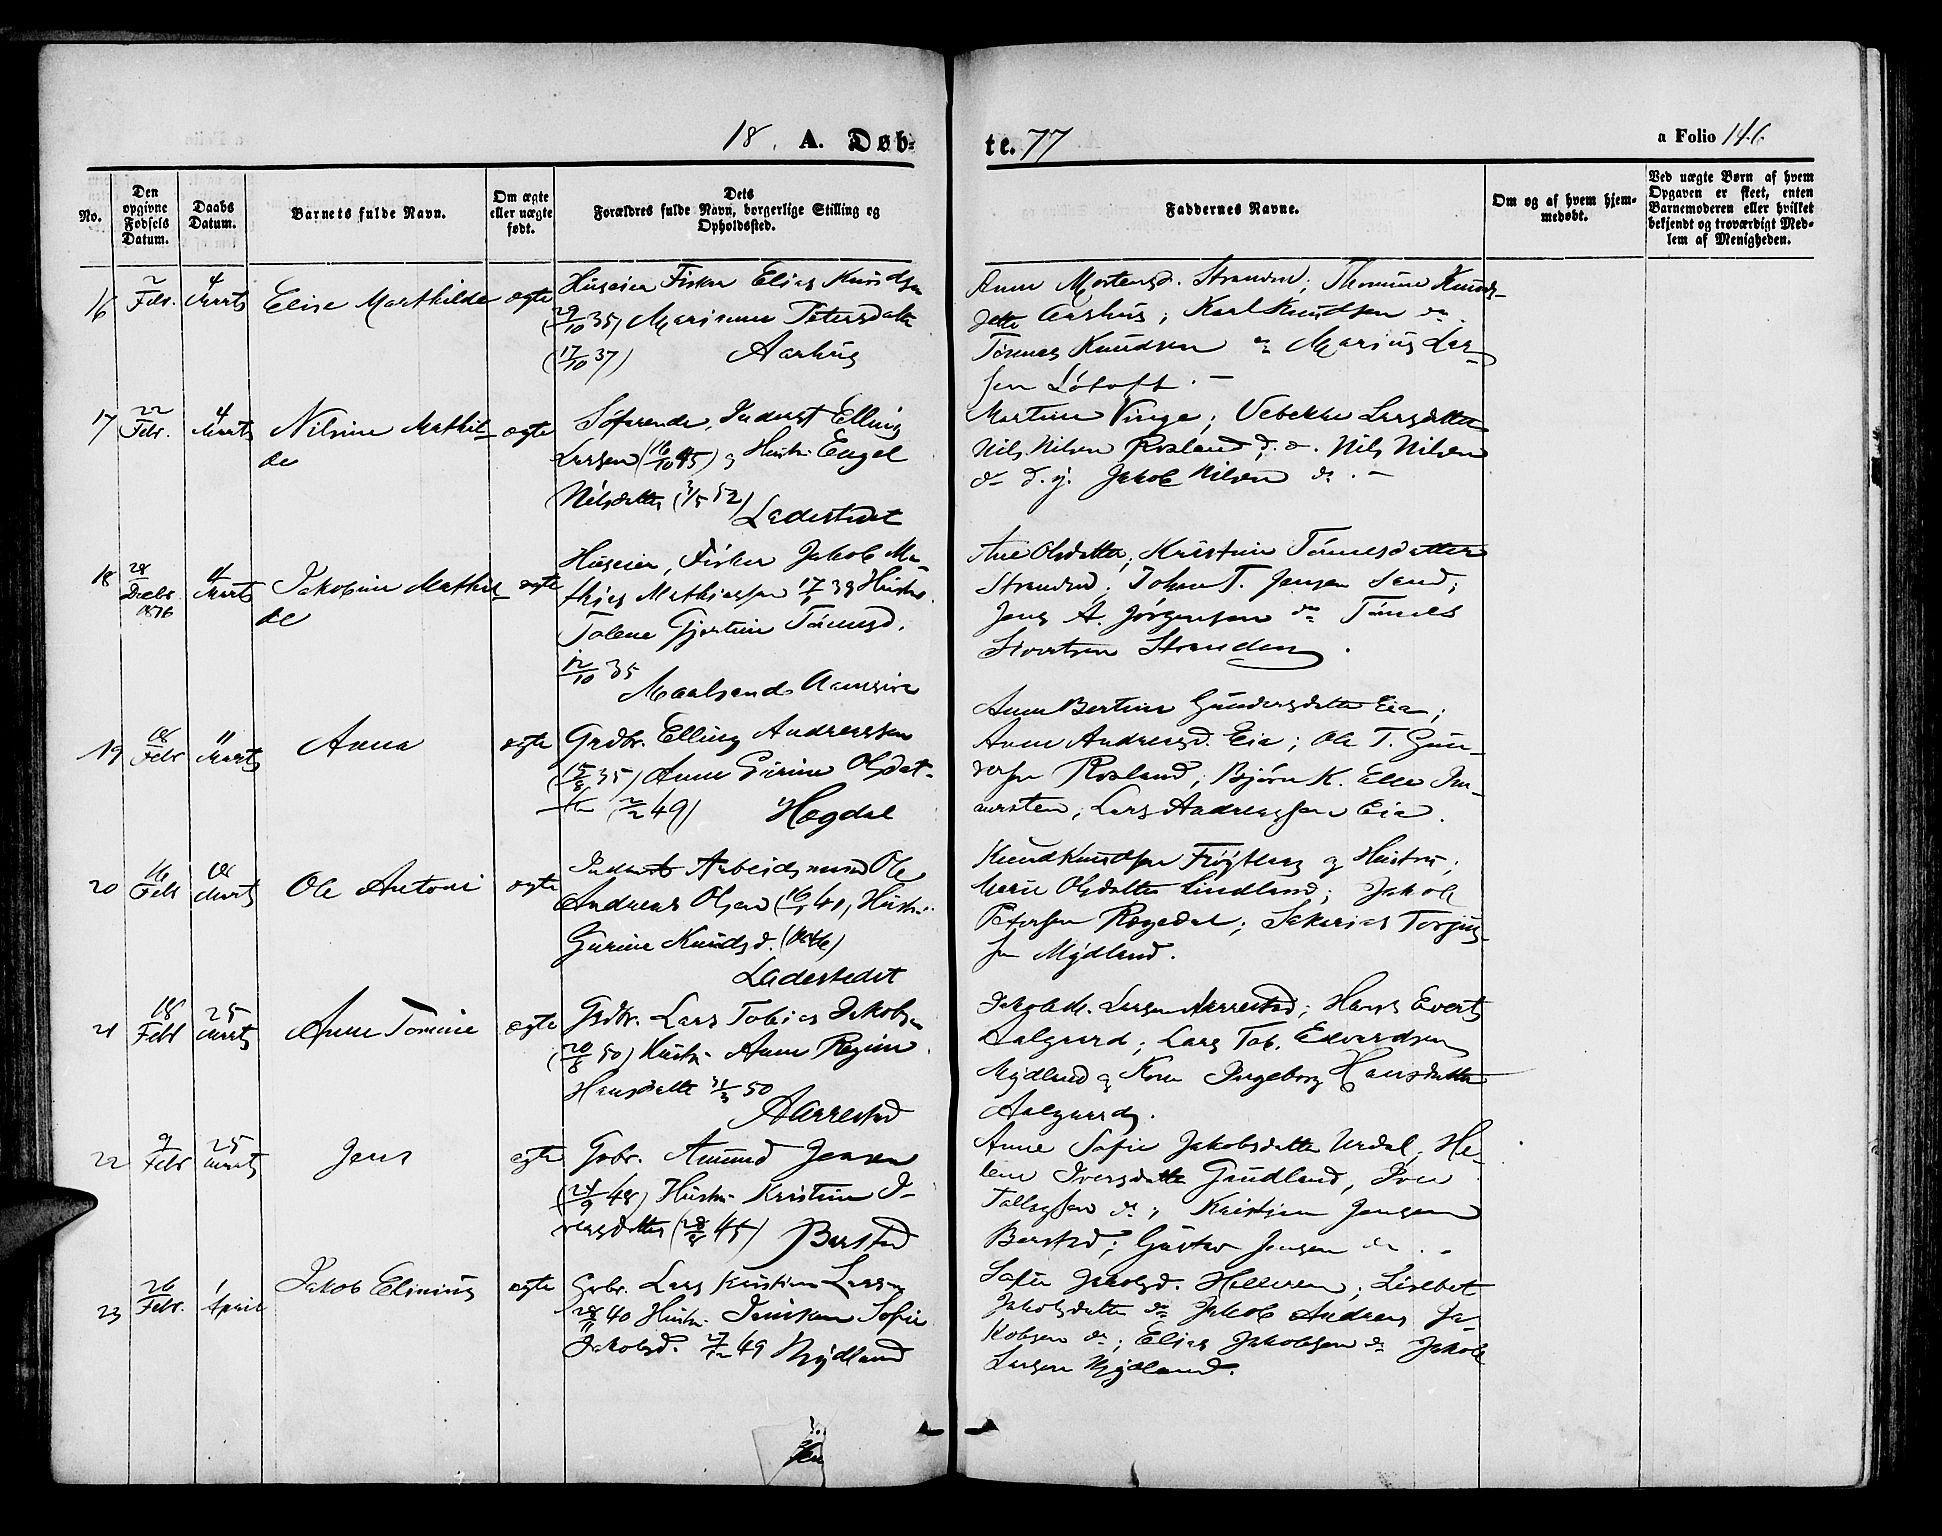 18 A. Døb-
te. 77
a Folio 146
No.
Den
opgivne
Fødsels
Datum.
Daabs
Datum.
Barnets fulde Navn.
Om ægte
eller uægte
født.
Dets
Forældres fulde Navn, borgerlige Stilling og
Opholdssted.
Faddernes Navne.
Om og af hvem hjem-
medøbt.
Ved uægte Børn af hvem
Opgaven er skeet, enten
Barnemoderen eller hvilket
bekjendt og troværdigt Med-
lem af Menigheden.
16 2 Febr. 4 Marts Elise Marthilde ægte Huseier Fisker Elias Knudsen
(29/10 35) Petersdatter
(17/10 37) Aarhus
Anne Mortensd. Strandnd; Thomine Knuds-
datter Aarshus; Karl Knudsen do
Tønnes Knudsen og Marius Lar-
sen Lótoft.
17 22 Febr. 4 Marts Nilsine Mathil-
de
ægte Søfarende, Inderst Elling
Larsen (16/10 45) og Hustr. Engel
Nilsdatter (3/5 52)
Ladestedet
Martine Vinge; Vebekke Larsdatter
Nils Nilsen Rosland d. æ. Nils Nilsen
do d. y. Jakob Nilsen do.
18 28 Decbr 1876 4 Marts Jakobine Mathil-
de
ægte Huseier, Fisker Jakob Ma-
thias Mathiassen 17/1 39 Hustr.
Tolene Gjertine Tønnesd.
12/10 35
Aamsire
Ane Olsdatter; Kristine Tønnesdatter
Strandnd; Johan T. Jensen Sand;
Jens A. Jørgensen do Tønnes
Sivertsen Stranden.
19 18 Febr 11 Marts Anna ægte Grdbr. Elling Andreassen
(15/8 35) Anne Gurine Olsdat-
ter (2/2 49) Hægdal
Anne Bertine Gundersdatter Eia;
Anne Andreasd. Eia; Ole T. Gun-
dersen Rosland; Bjørn K. Elle
Lars Andreassen Eia.
20 16 Febr 18 Marts Ole Antoni ægte Inderst Arbeidsmand Ole
Andreas Olsen (16/1 41) Hustr.
Gurine Knudsd. (1846)
Ladestedet
Knud Knudsen Frøytlog og Hustru;
Marie Olsdatter Lindland; Jakob
Petersen Rægedal; Sakarias Torjus-
sen Mydland.
21 18 Febr 25 Marts Anne Tomine ægte Grdbr. Lars Tobias Jakobsen
(20/8 50) Hustr. Anne Regine
Hansdatter 31/3 50
Aarrestad
Jakob M. Larsen Aarrestad; Hans Evert
Aalgaard; Lars Tob. Edvardsen
Mydland og Kone Ingeborg Hansdatter
Aalgaard.
22 9 Febr 25 Marts Jens ægte Grbr. Amund Jensen
(24/9 48) Hustr. Kristine I-
versdatter (28/8 45) Barstad
Anne Sofie Jakobsdatter Urdal; He-
lene Iversdatter Gudland, Iver
Tollagsen do; Kristjan Jensen
Barstad; Gustav Jensen do.
23 26 Febr. 1 April Jakob Elinius ægte Grbr. Lars Kristian Larsen
28/11 40 Hustr. Jeniken Sofie
Jakobsd. 27/12 49 Mydland
Sofie Jakobsd. Helleren; Lisebet
Jakobsdatter do Jakob Andreas Ja-
kobsen do; Elias Jakobsen do Jakob
Larsen Mydland.